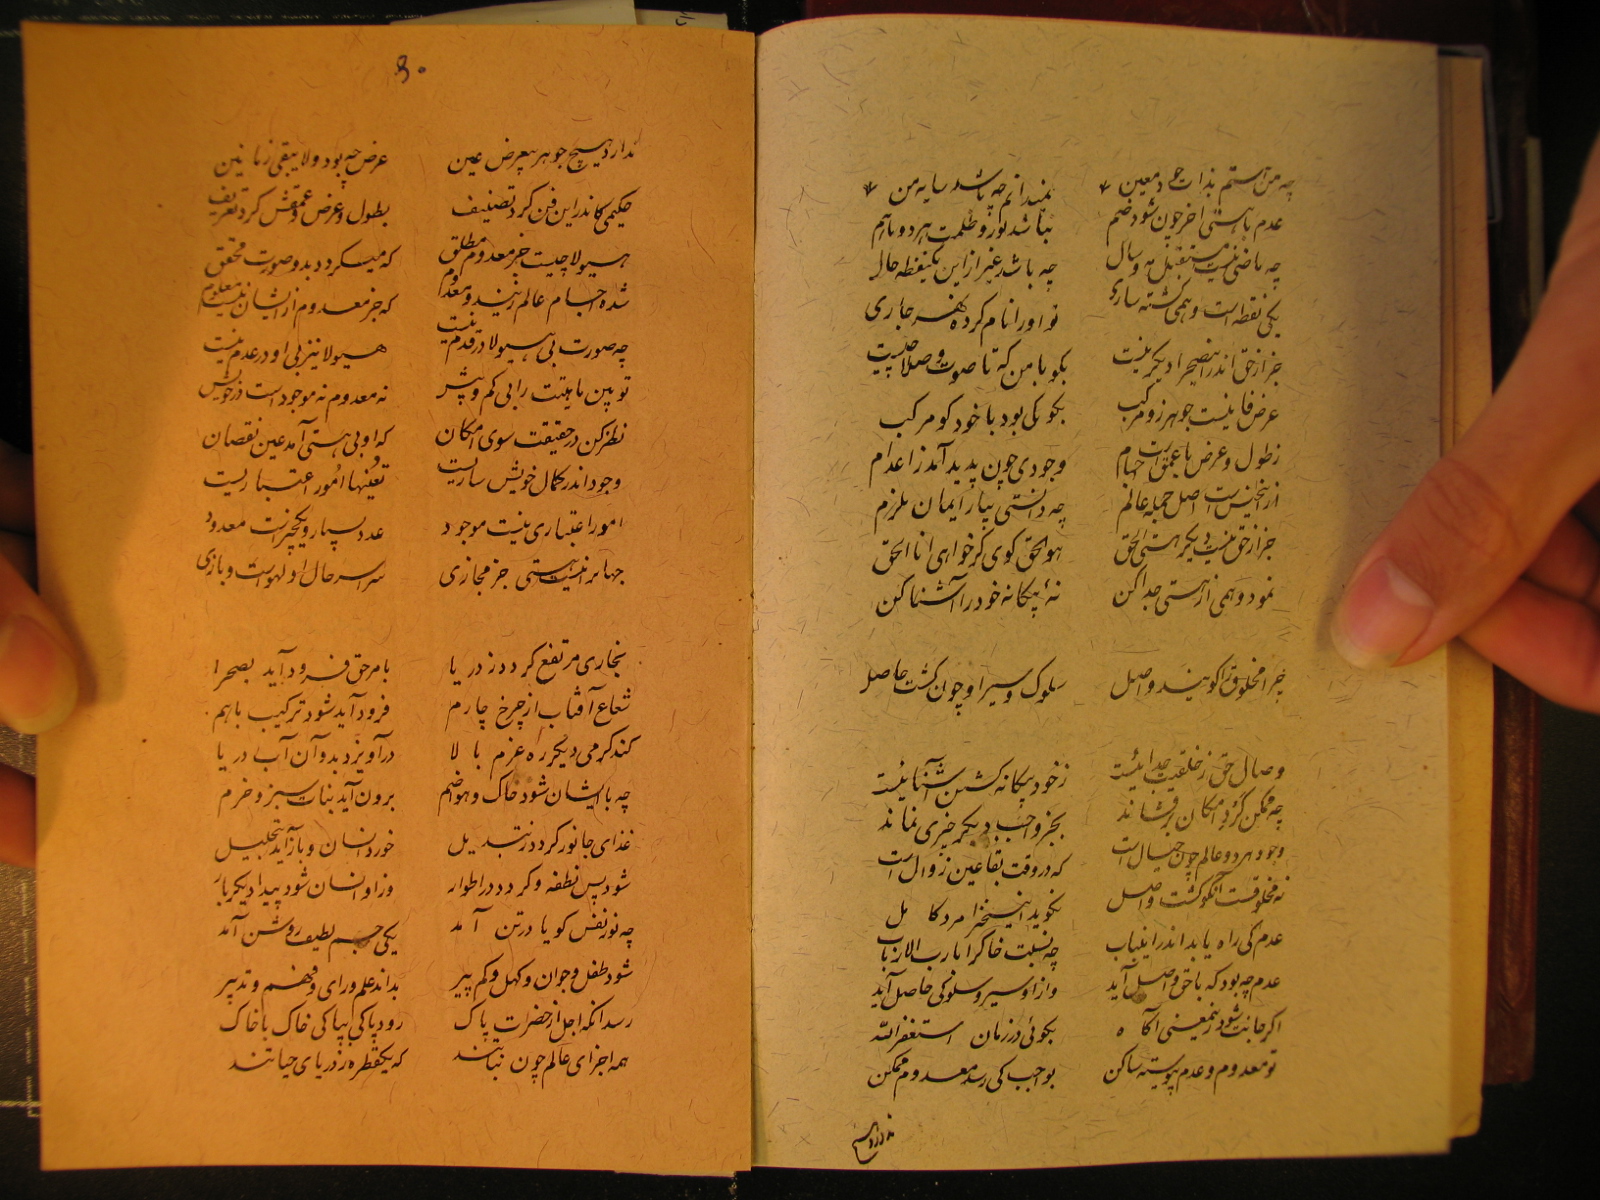 چه من هستم بذات خود معین نمیدانم چه باشد سایه من
عدم با هستی اخر چون شود ضم نباشد نور و ظلمت هر دو باهم
چه ماضی نیست مستقبل مه و سال چه باشد غیر از این یکنقطه حال
یکی نقطه است وهمی کشته ساری تو اورا نام کرده نهر جاری
جز از حق اندر اینصحرا دیکر نیست بکو با من که تا صوت و صدا چیست
عرض فانیست جوهر زو مرکب بکو کی بود یا خود کو مرکب
ز طول و عرض با عمق است اجسام وجودی چون پدید آمد ز اعدام
از اینجنس است اصل جمله عالم چه دانستی بیار ایمان
جز از حق نیست دیکر هستی الحق هو الحق کوی کر خواهی انا الحق
نمود وهمی از هستی جدا کن نهٔ بیکانه خود را آشنا کن
چرا مخلوق را کویند واصل سلوک و سیر او چون کشت حاصل
وصال حق ز خلقیت جدائیست ز خود بیکانه کشتن آشنائیست
چه ممکن کرد امکان برفشاند بجز واجب دیکر چیزی نماند
وجود هر دو عالم چون خیال است که در وقت بقا عین زوال است
نه مخلوقست آنکو کشت واصل نکوید اینسخن را مرد کامل
عدم کی راه یابد اندر اینباب چه نسبت خاکرا با رب الارباب
عدم چه بود که با حق واصل آید و از او سیر و سلوکی حاصل آید
اکر جانت شود زینمعنی آکاه بکوئی در زمان استغفرالله
تو معدوم و عدم پیوسته ساکن بواجب کی رسد معدوم ممکن
ندارد هیچ
۵۰
ندارد هیچ جوهر بیعرض عین عرض چه بود ولا یبقی زمانین
حکیمی کاندر این فن کرد تصنیف بطول و عرض و عمقش کرد تعریف
هیولا چیست جز معدوم مطلق که میکردد بدو صورت محقق
شده اجسام عالم زیندو معدوم که جز معدوم از ایشان نیست معلوم
چه صورت بی هیولا در قدم نیست هیولا نیز بی او در عدم نیست
تو بین ماهیتت را بی کم و بیش نه معدوم نه موجود است در خویش
نظر کن در حقیقت سوی امکان که او بی هستی آمد عین نقصان
وجود اندر کمال خویش ساریست تعینها امور اعتباریست
امور اعتباری نیست موجود عدد بسیار و یکچیز است معدود
جهانرا نیست هستی جز مجازی سراسر حال او لهو است و بازی
بخاری مرتفع کردد ز دریا بامر حق فرود آید بصحرا
شعاع آفتاب از چرخ چارم فرود آید شود ترکیب باهم
کند کرمی دیکر ره عزم بالا درآویزد بدو آن آب دریا
چه با ایشان شود خاک و هوا ضم برون آید نبات سبز و خرم
غذای جانور کردد ز تبدیل خورد انسان و باز آید بتحلیل
شود پس نطفه و کردد در اطوار و زاو انسان شود پیدا دیکر بار
چه نور نفس کویا در تن آمد یکی جسم لطیف روشن آمد
شود طفل و جوان و کهل و کم پیر بداند علم و رای و فهم و تدبیر
رسد انکه اجل از حضرت پاک رود پاکی بپاکی خاک با خاک
همه اجزای عالم چون نباتند که یکقطره ز دریای حیاتند